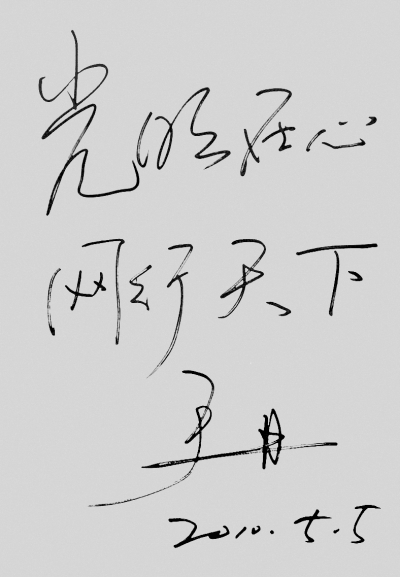 光明在心
网行天下
于丹
2010.5.5